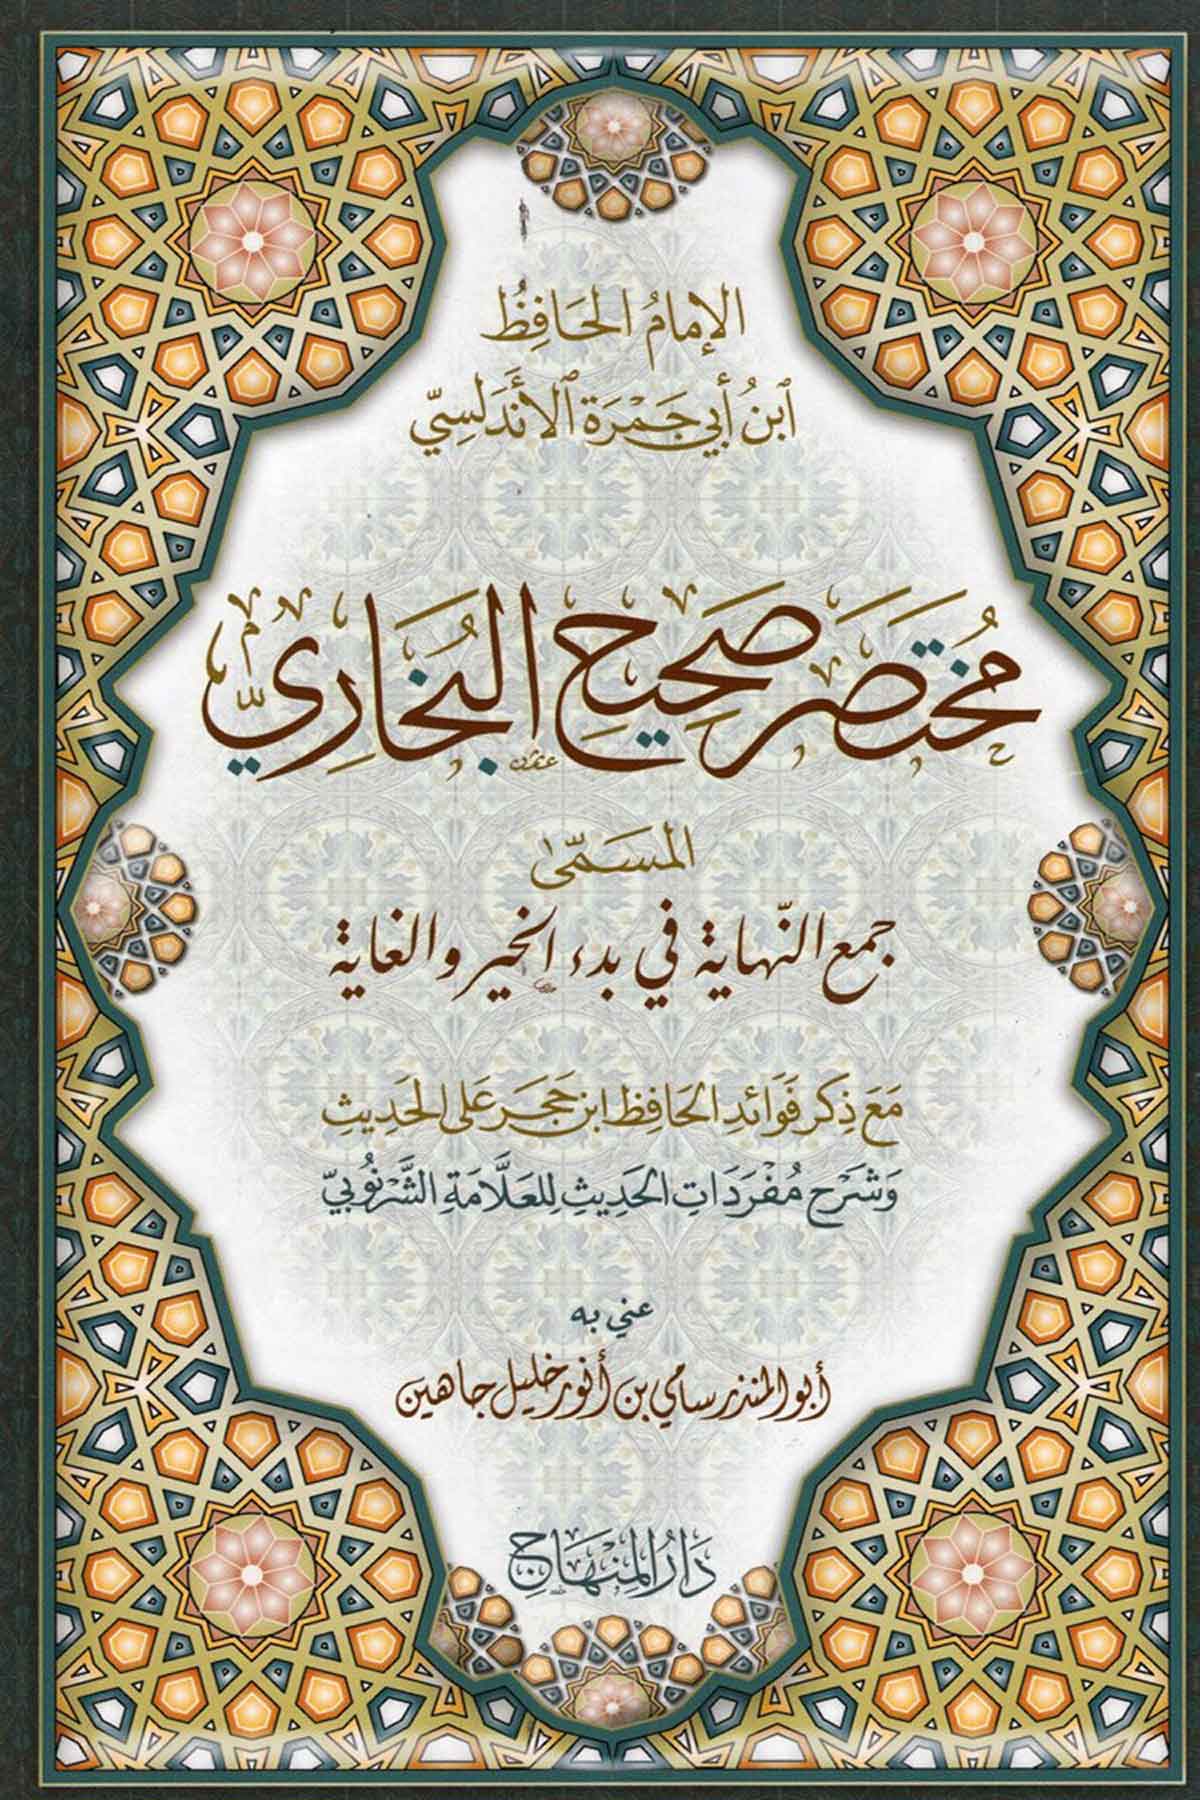 الإمامُ الحَافِظُ
ٱبنُ أَبي جَمْرَة ٱلأَندَلسِيّ
مُختَصَر صَحِيح البُخَارِيّ
المسَمّىٰ
جمع النّهاية في بدء الخير والغاية
مَعَ ذِكر فَوَائد الحَافِظ ابن حَجَر عَلى الحَدِيثِ
وَشَرح مُفْرَدَاتِ الحَدِيثِ لِلعَلَّامَةِ الشَّرنُوبيّ
عني به
أبو المنذر سامي بن أنور خليل جاهين
دَارُ المِنْهَاج